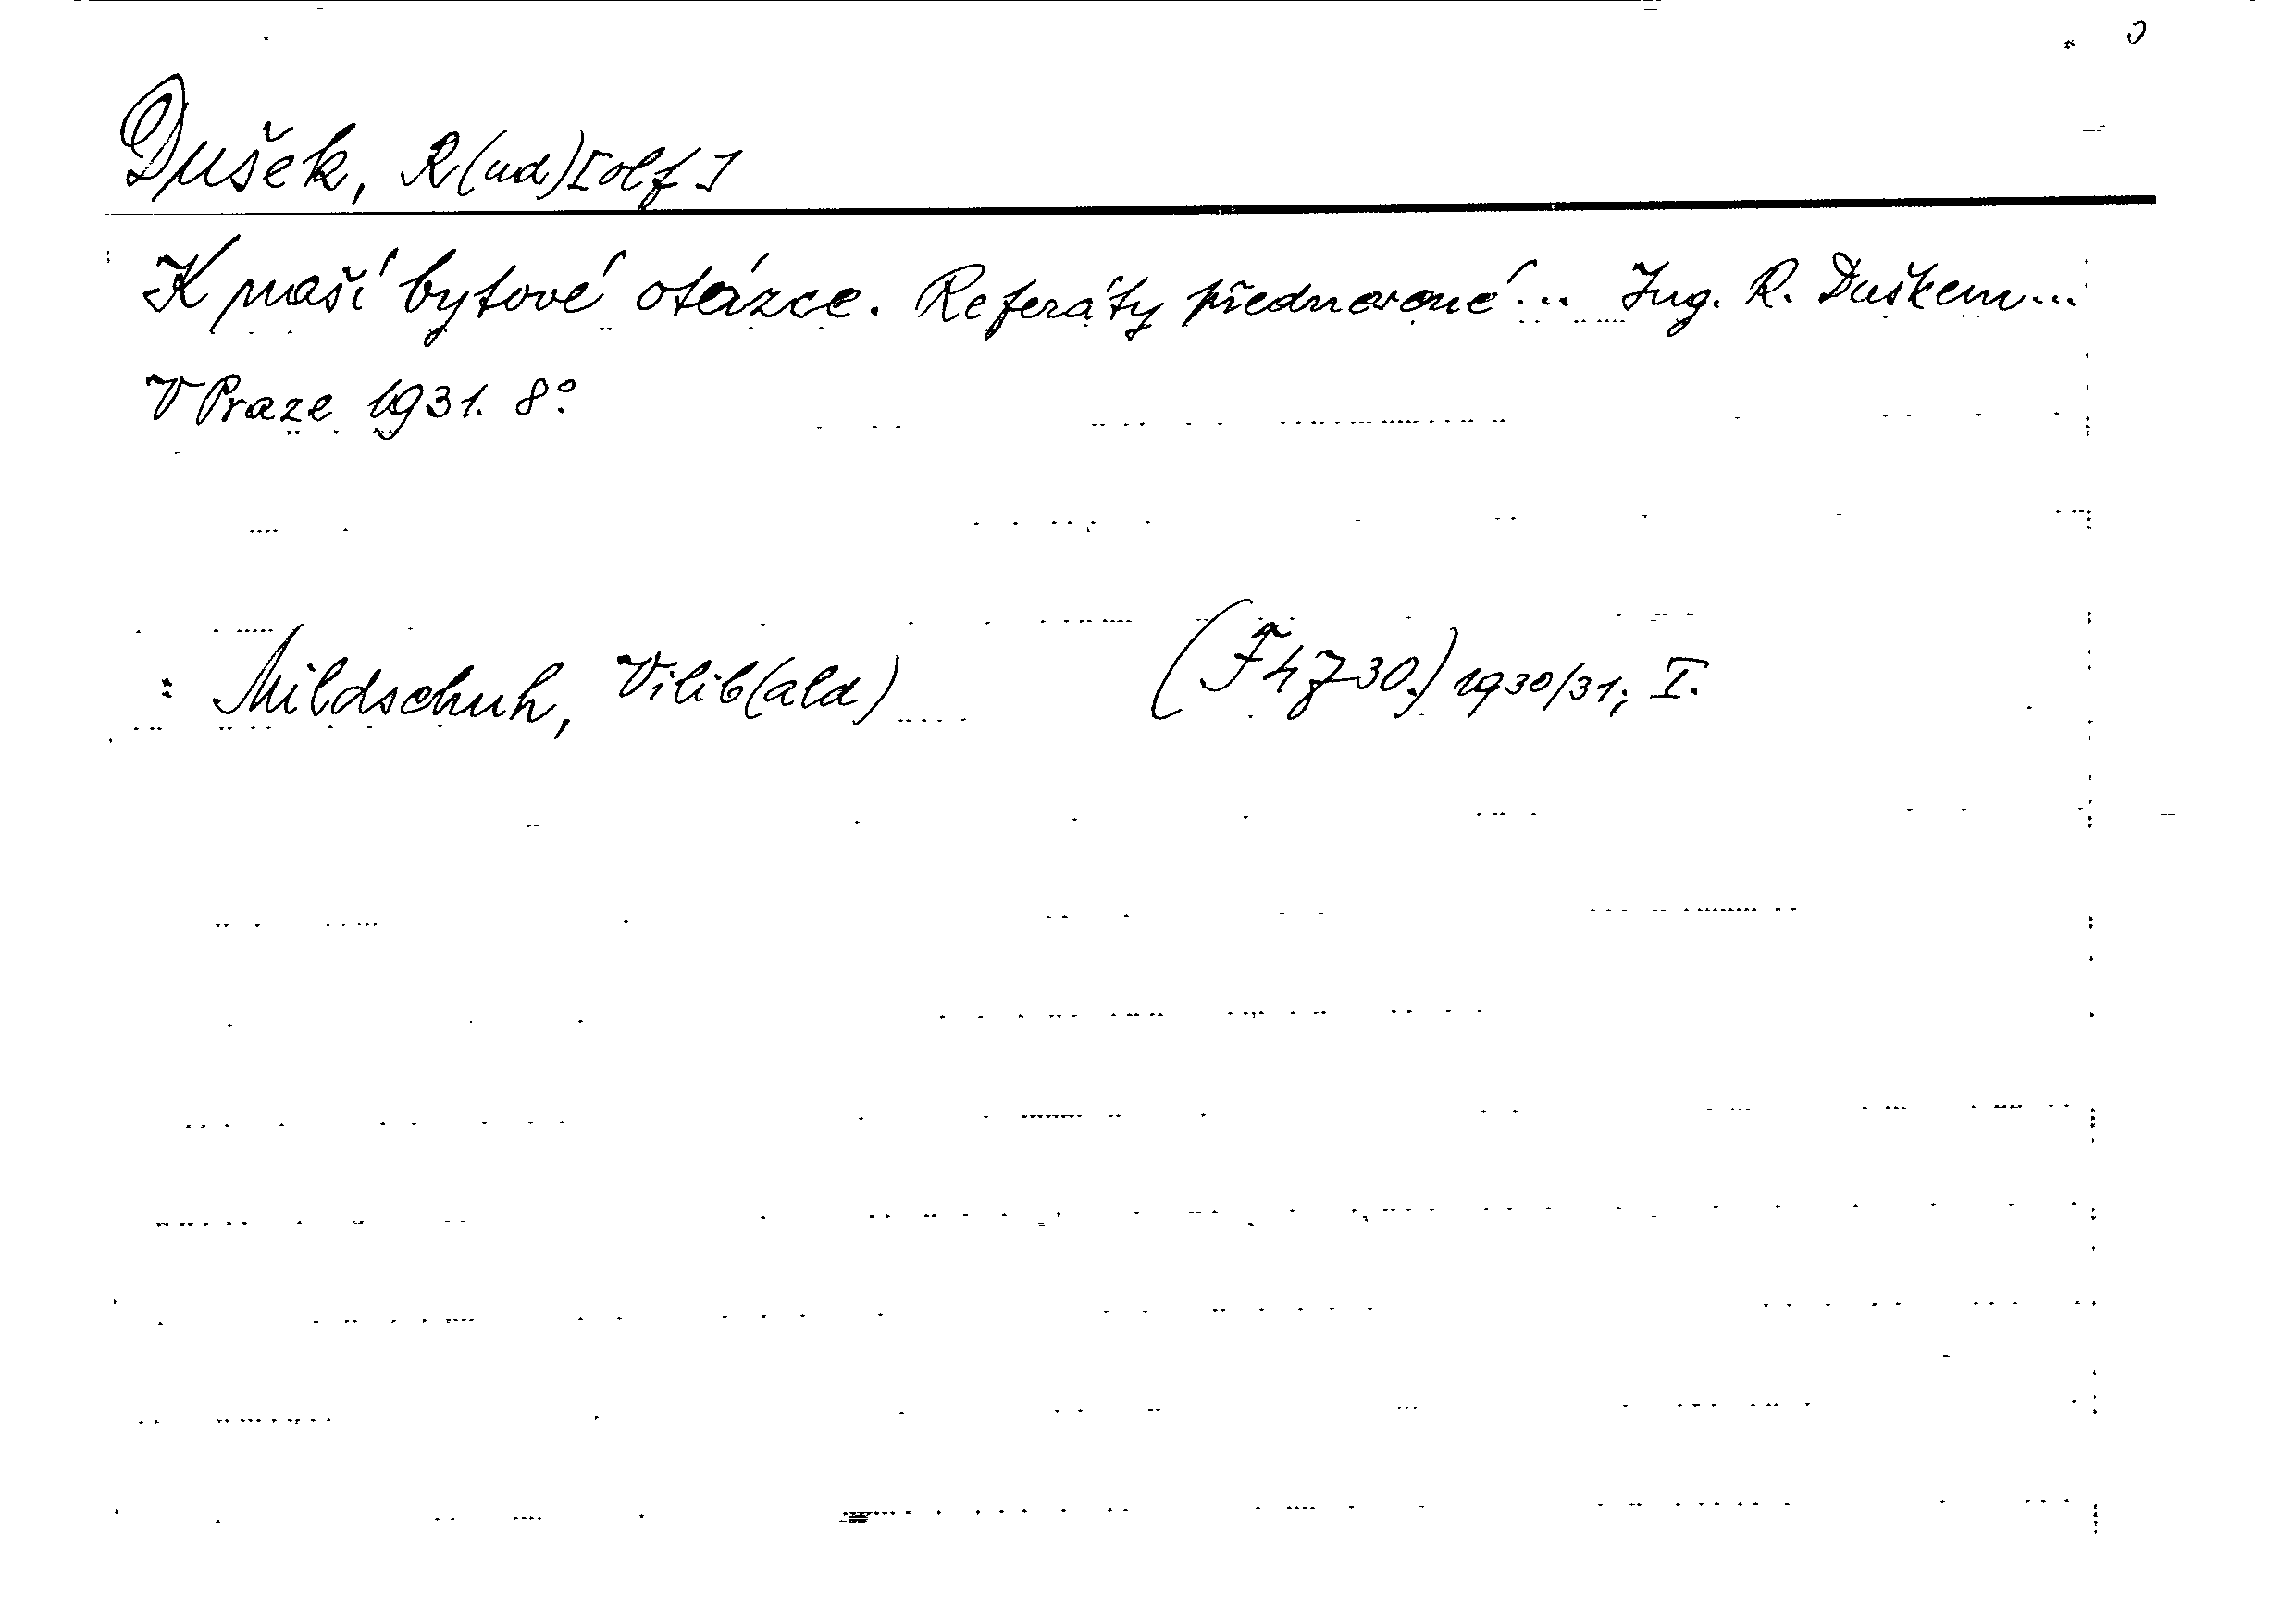 Dušek, R(ud)[olf]
K naší bytové otázce. Referáty přednesené... Ing. R. Duškem...
V Praze 1931. 8°.
: Mildschuh, Vilib(ald) (F4730.) 1930/31; I.